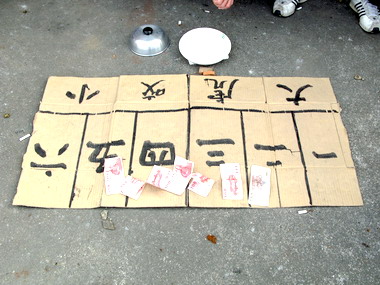 小 咬 虎 大
六 五 四 三 二 一